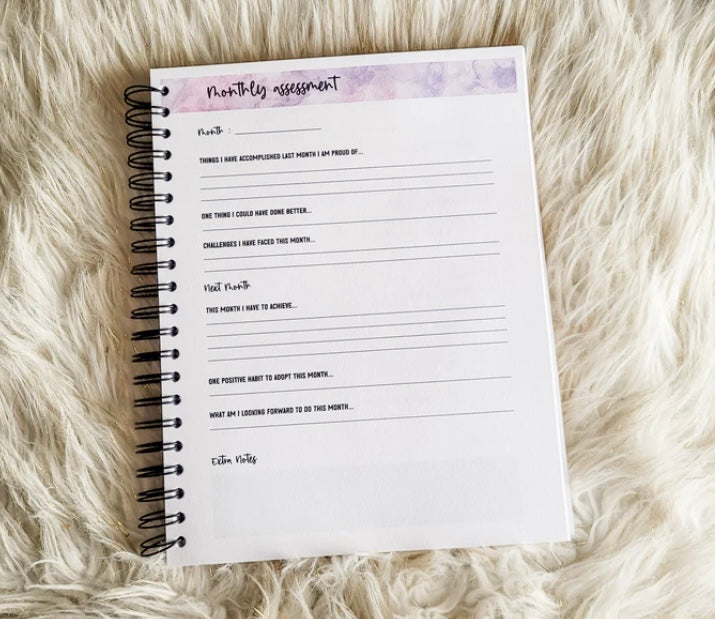 Monthly assessment
Month : ____________
THINGS I HAVE ACCOMPLISHED LAST MONTH I AM PROUD OF...
ONE THING I COULD HAVE DONE BETTER...
CHALLENGES I HAVE FACED THIS MONTH...
Next Month
THIS MONTH I HAVE TO ACHIEVE...
ONE POSITIVE HABIT TO ADOPT THIS MONTH...
WHAT AM I LOOKING FORWARD TO DO THIS MONTH...
Extra Notes